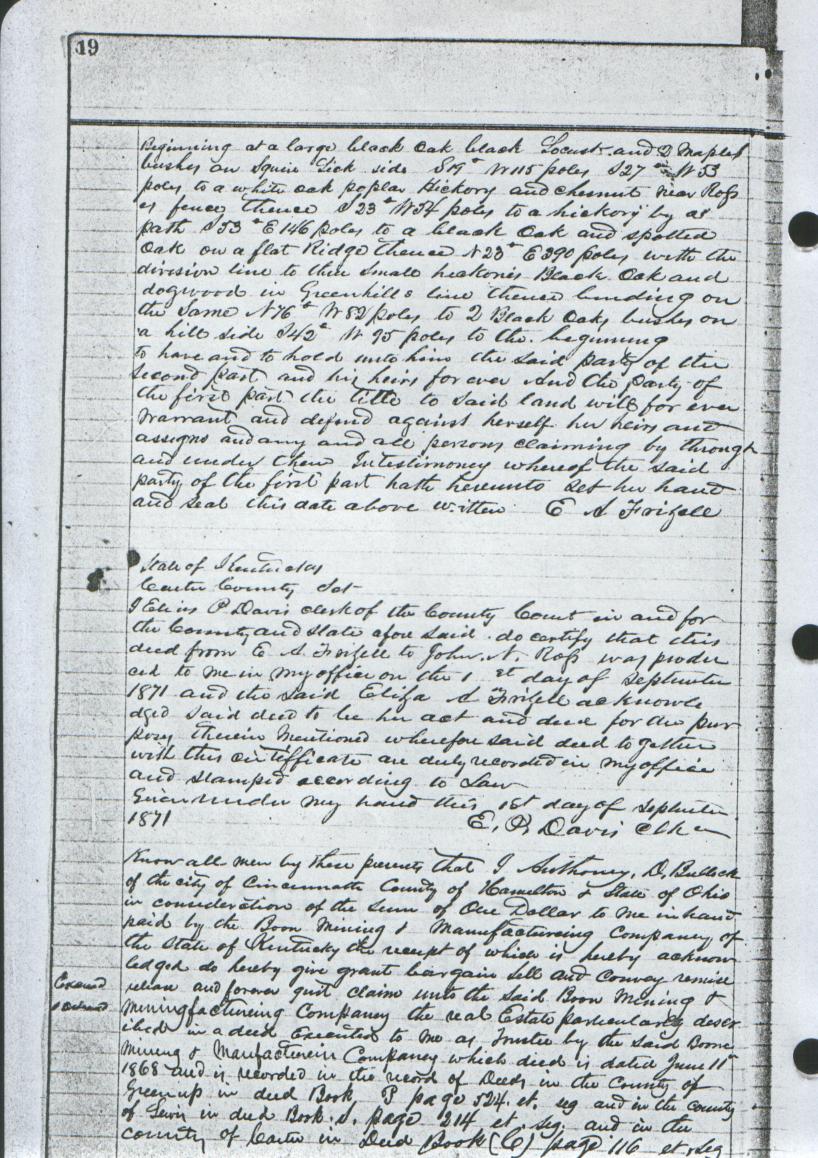 19
Beginning at a large black Oak black Locust and 2 Maples
bushes on Squire Lick side S19° W115 poles S27° W53
poles to a white oak poplar Hickory and chesnut near Ross
es fence thence S23° W54 poles to a hickory by a
path S53° E146 poles to a black Oak and spotted
Oak on a flat Ridge thence N23° E390 poles with the
division line to three small hickories Black Oak and
dogwood in Greenhills line thence binding on
the same N76° W82 poles to 2 Black Oaks bushes on
a hill side S42° W 95 poles to the beginning
to have and to hold unto him the said party of the
second part and his heirs for ever And the party of
the first part the title to said land will for ever
Warrant and defend against herself her heirs and
assigns and any and all persons claiming by through
and under them Intestimoney whereof the said
party of the first part hath hereunto set her hand
and seal this date above written E A Frizell
State of Kentucky
Carter County Sct
I Elias P Davis clerk of the County Court in and for
the County and State afore said do certify that this
deed from E A Frizell to John N. Ross was produc
ed to me in my office on the 1st day of September
1871 and the said Eliza A Frizell acknowle
dged said deed to be her act and deed for the pur
poses therein Mentioned wherefore said deed together
with this certifficate are duly recorded in my office
and stamped according to Law
Given under my hand this 1st day of September
1871 E. P. Davis Clk
Know all men by these presents that I Anthoney, D, Bullock
of the city of Cincinnatti County of Hamilton & State of Ohio
in consideration of the sum of One Dollar to me in hand
paid by the Boon Mining & Manufactureing Companey of
the State of Kentucky the receipt of which is hereby acknow
ledged do hereby give grant bargain sell and convey remise
release and forever quit claim unto the said Boon Mining &
Miningfactureing Companey the real Estate particularly descr
ibed in a deed Executed to me as Trustee by the said Boone
Mining & Manufacturein Companey which died is dated June 11th
1868 and is recorded in the record of Deeds in the County of
Greenup in deed Book, P page 524 et. seg and in the County
of Lewis in deed Book. S. page 214 et seg. and in the
county of Carter in Deed Book (C) page 116 et seg